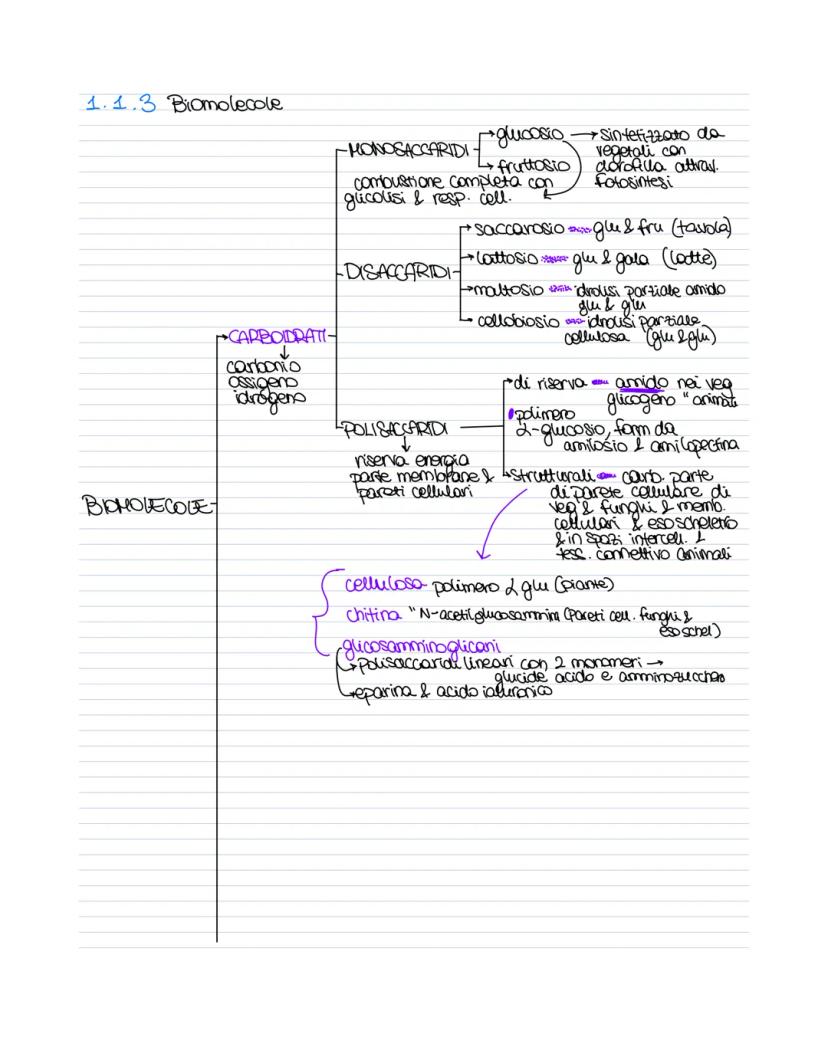 1.1.3 Biomolecole
BIOMOLECOLE
CARBOIDRATI
carbonio
ossigeno
idrogeno
MONOSACCARIDI
glucosio → sintetizzato da
vegetali con
clorofilla attrav.
fotosintesi
fruttosio
combustione completa con
glicolisi & resp. cell.
DISACCARIDI
saccarosio glu & fru (tavola)
lattosio glu & gala (latte)
maltosio idrolisi parziale amido
glu & glu
cellobiosio idrolisi parziale
cellulosa (glu & glu)
POLISACCARIDI
riserva energia
parte membrane &
pareti cellulari
di riserva amido nei veg
glicogeno " animali
polimero
α-glucosio, form da
amilosio & amilopectina
strutturali carb. parte
di parete cellulare di
veg & funghi & memb.
cellulari & esoscheletro
& in spazi intercell. &
tess. connettivo animali
cellulosa polimero α glu (piante)
chitina " N-acetilglucosammina (Pareti cell. funghi &
esoschel)
glicosamminoglicani
polisaccaridi lineari con 2 monomeri →
glucide acido e amminozucchero
eparina & acido ialuronico